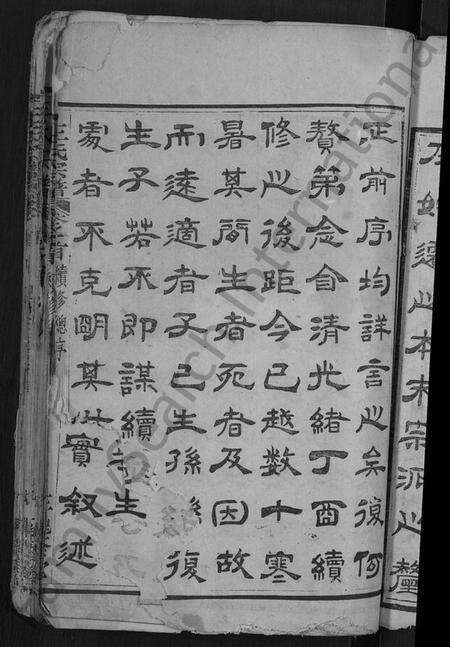 左始遷之本末宗派之釐
正前序均詳言之矣復何
贅第念自清光緒丁酉續
修之後距今已越數十寒
暑其間生者死者及因故
而遠適者子已生孫孫復
生子若不即謀續生
處者不克明其實叙述
王氏宗譜 卷之首 續修總序